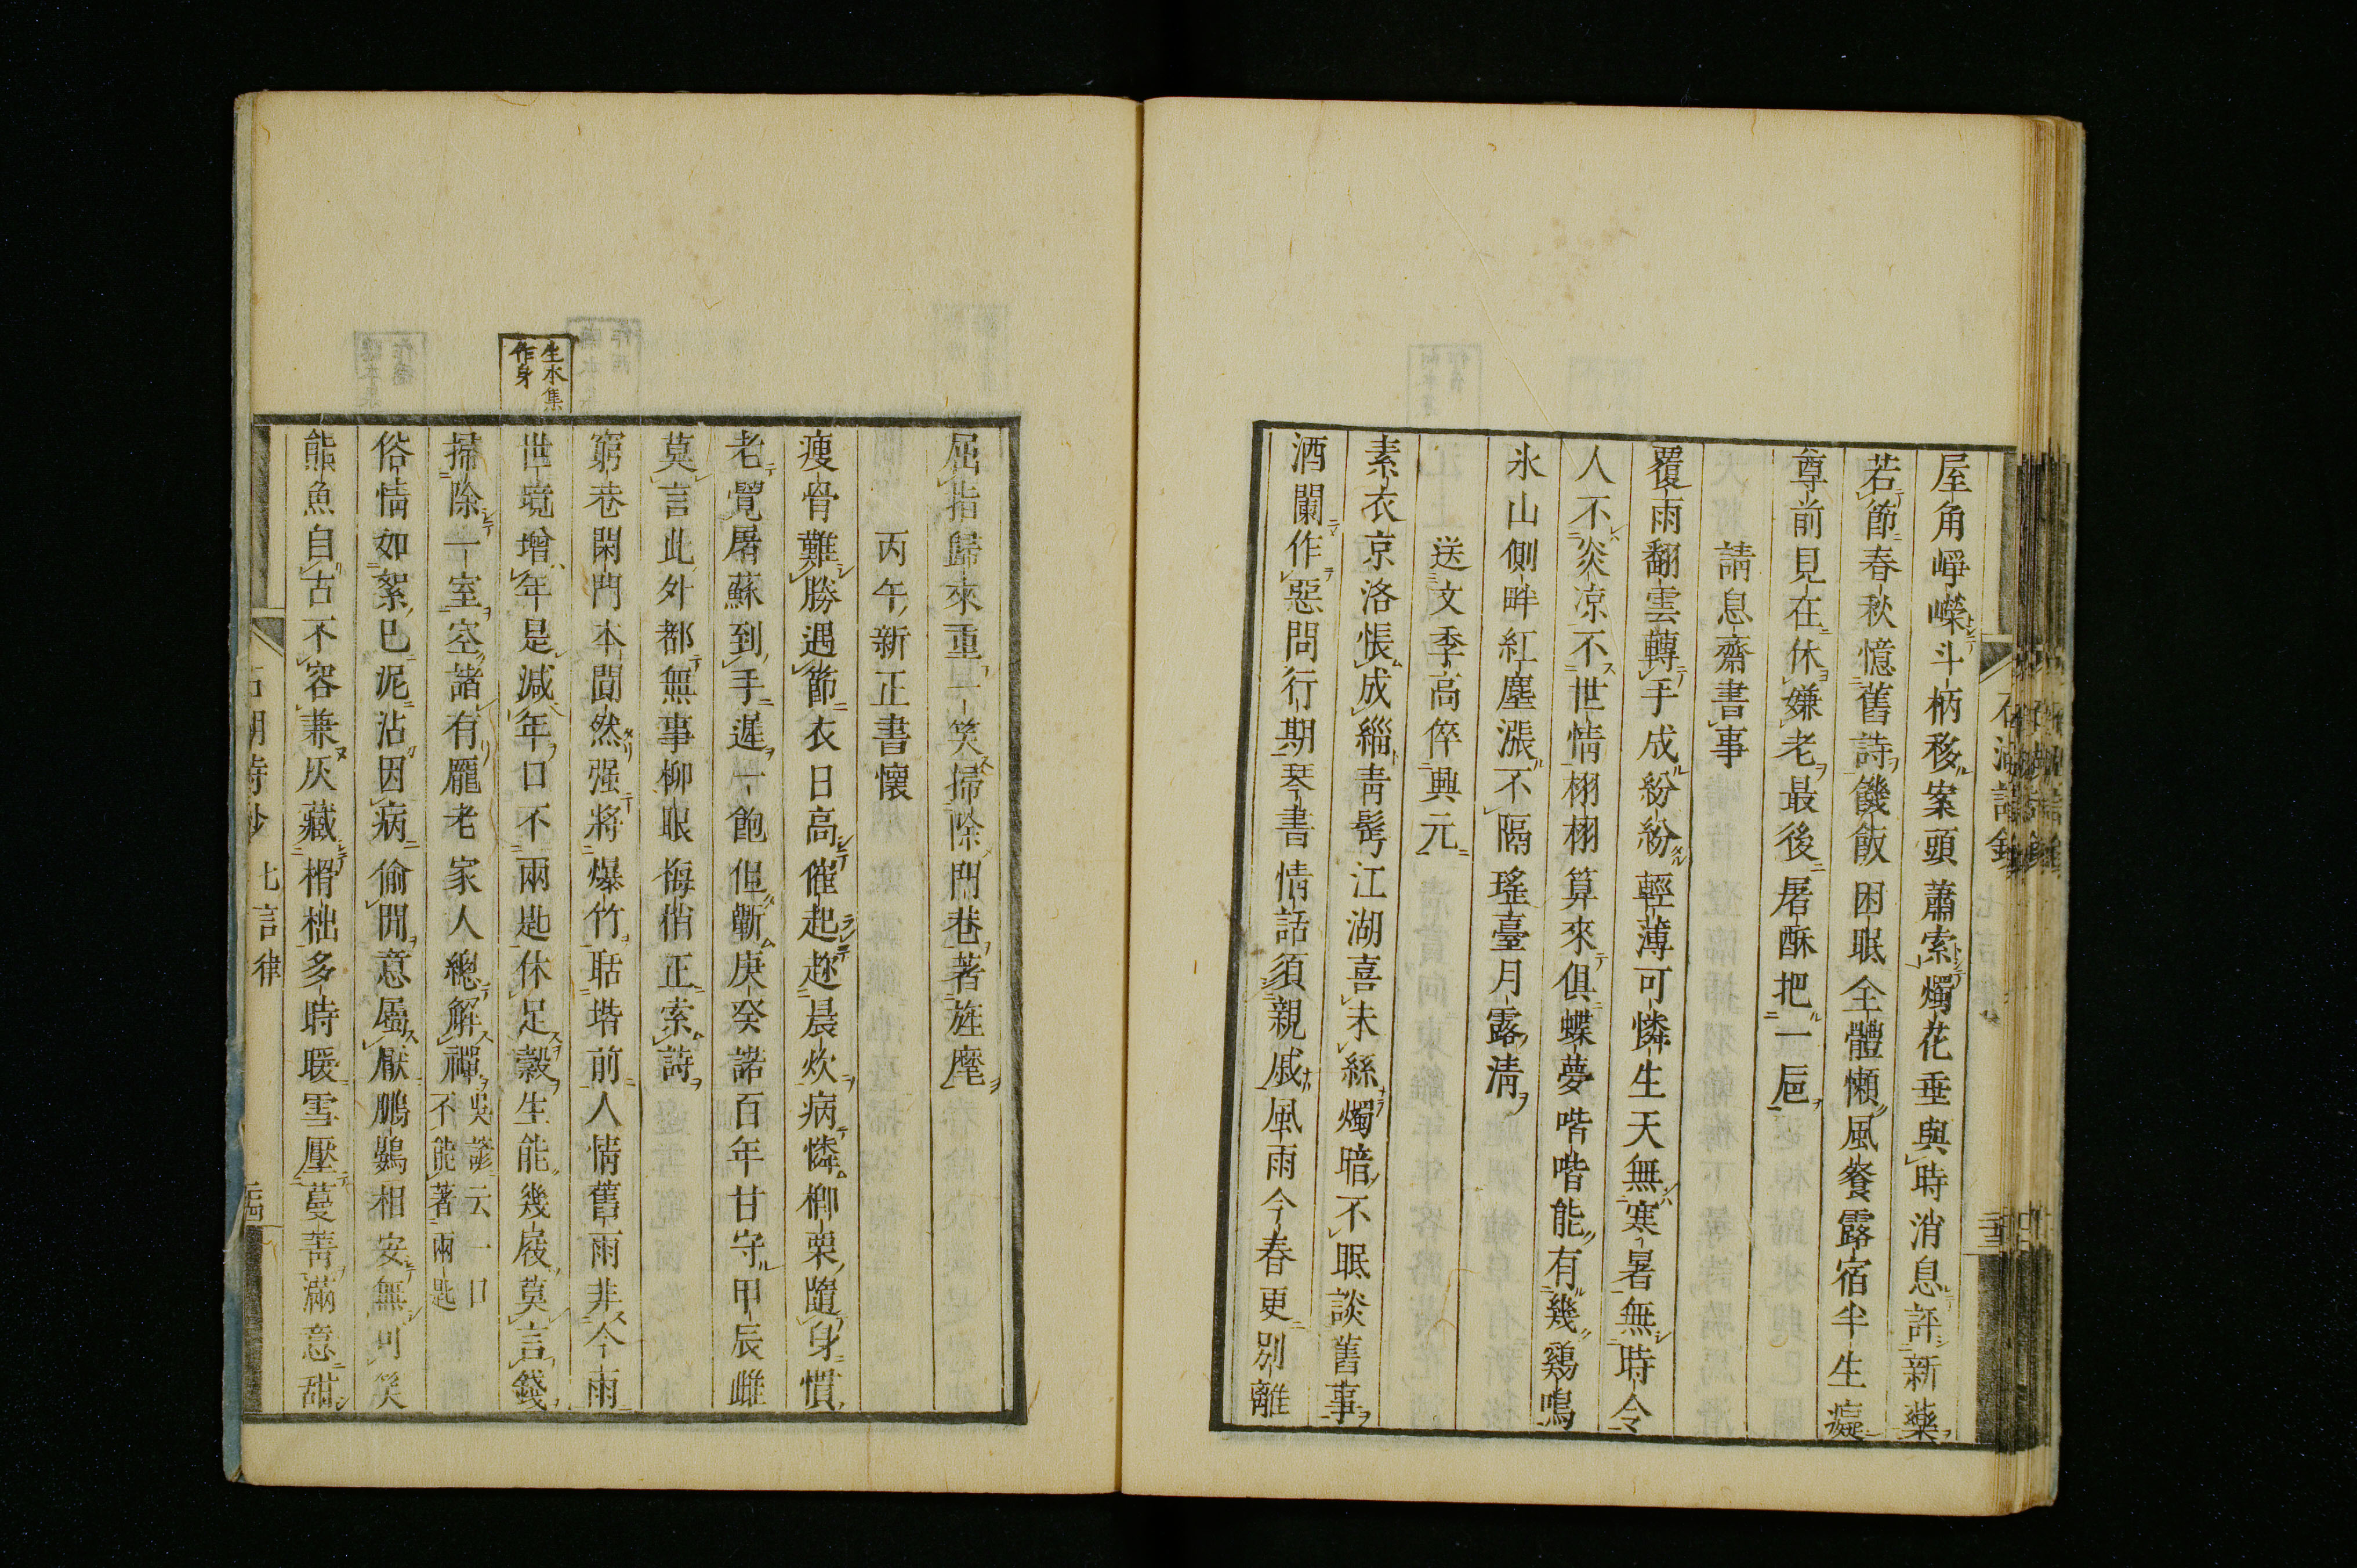 屋角崢嶸斗柄移案頭蕭索燭花垂與時消息評新藥
若節春秋憶舊詩饑飯困眠全體懶風餐露宿半生癡
尊前見在休嫌老最後屠酥把一巵
請息齋書事
覆雨翻雲轉手成紛紛輕薄可憐生天無寒暑無時令
人不炎凉不世情栩栩算來俱蝶夢喈喈能有幾鷄鳴
氷山側畔紅塵漲不隔瑤臺月露淸
送文季高倅興元
素衣京洛悵成緇靑髩江湖喜未絲燭暗不眠談舊事
酒闌作惡問行期琴書情話須親戚風雨今春更別離
屈指歸來重一笑掃除門巷著旌麾
丙午新正書懷
瘦骨難勝遇節衣日高催起趂晨炊病憐榔栗隨身慣
老覺屠蘇到手遲一飽但蘄庚癸諾百年甘守甲辰雌
莫言此外都無事柳眼梅梢正索詩
窮巷閑門本闃然强將爆竹聒堦前人情舊雨非今雨
生水集作身
世境增年是減年口不兩匙休足穀生能幾屐莫言錢
掃除一室空諸有龎老家人總解禪吳諺云一口不能著兩匙
俗情如絮已泥沾因病偷閒意屬厭鵬鷃相安無可笑
熊魚自古不容兼灰藏榾柮多時暖雪壓蔓菁滿意甜
七言律